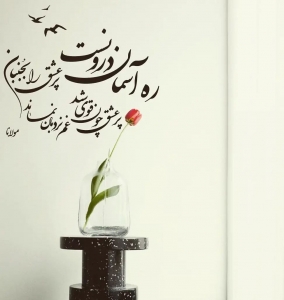 ره آسمان درونست
پر عشق را بجنبان
پر عشق چون قوی شد
غم نردبان نماند
مولانا